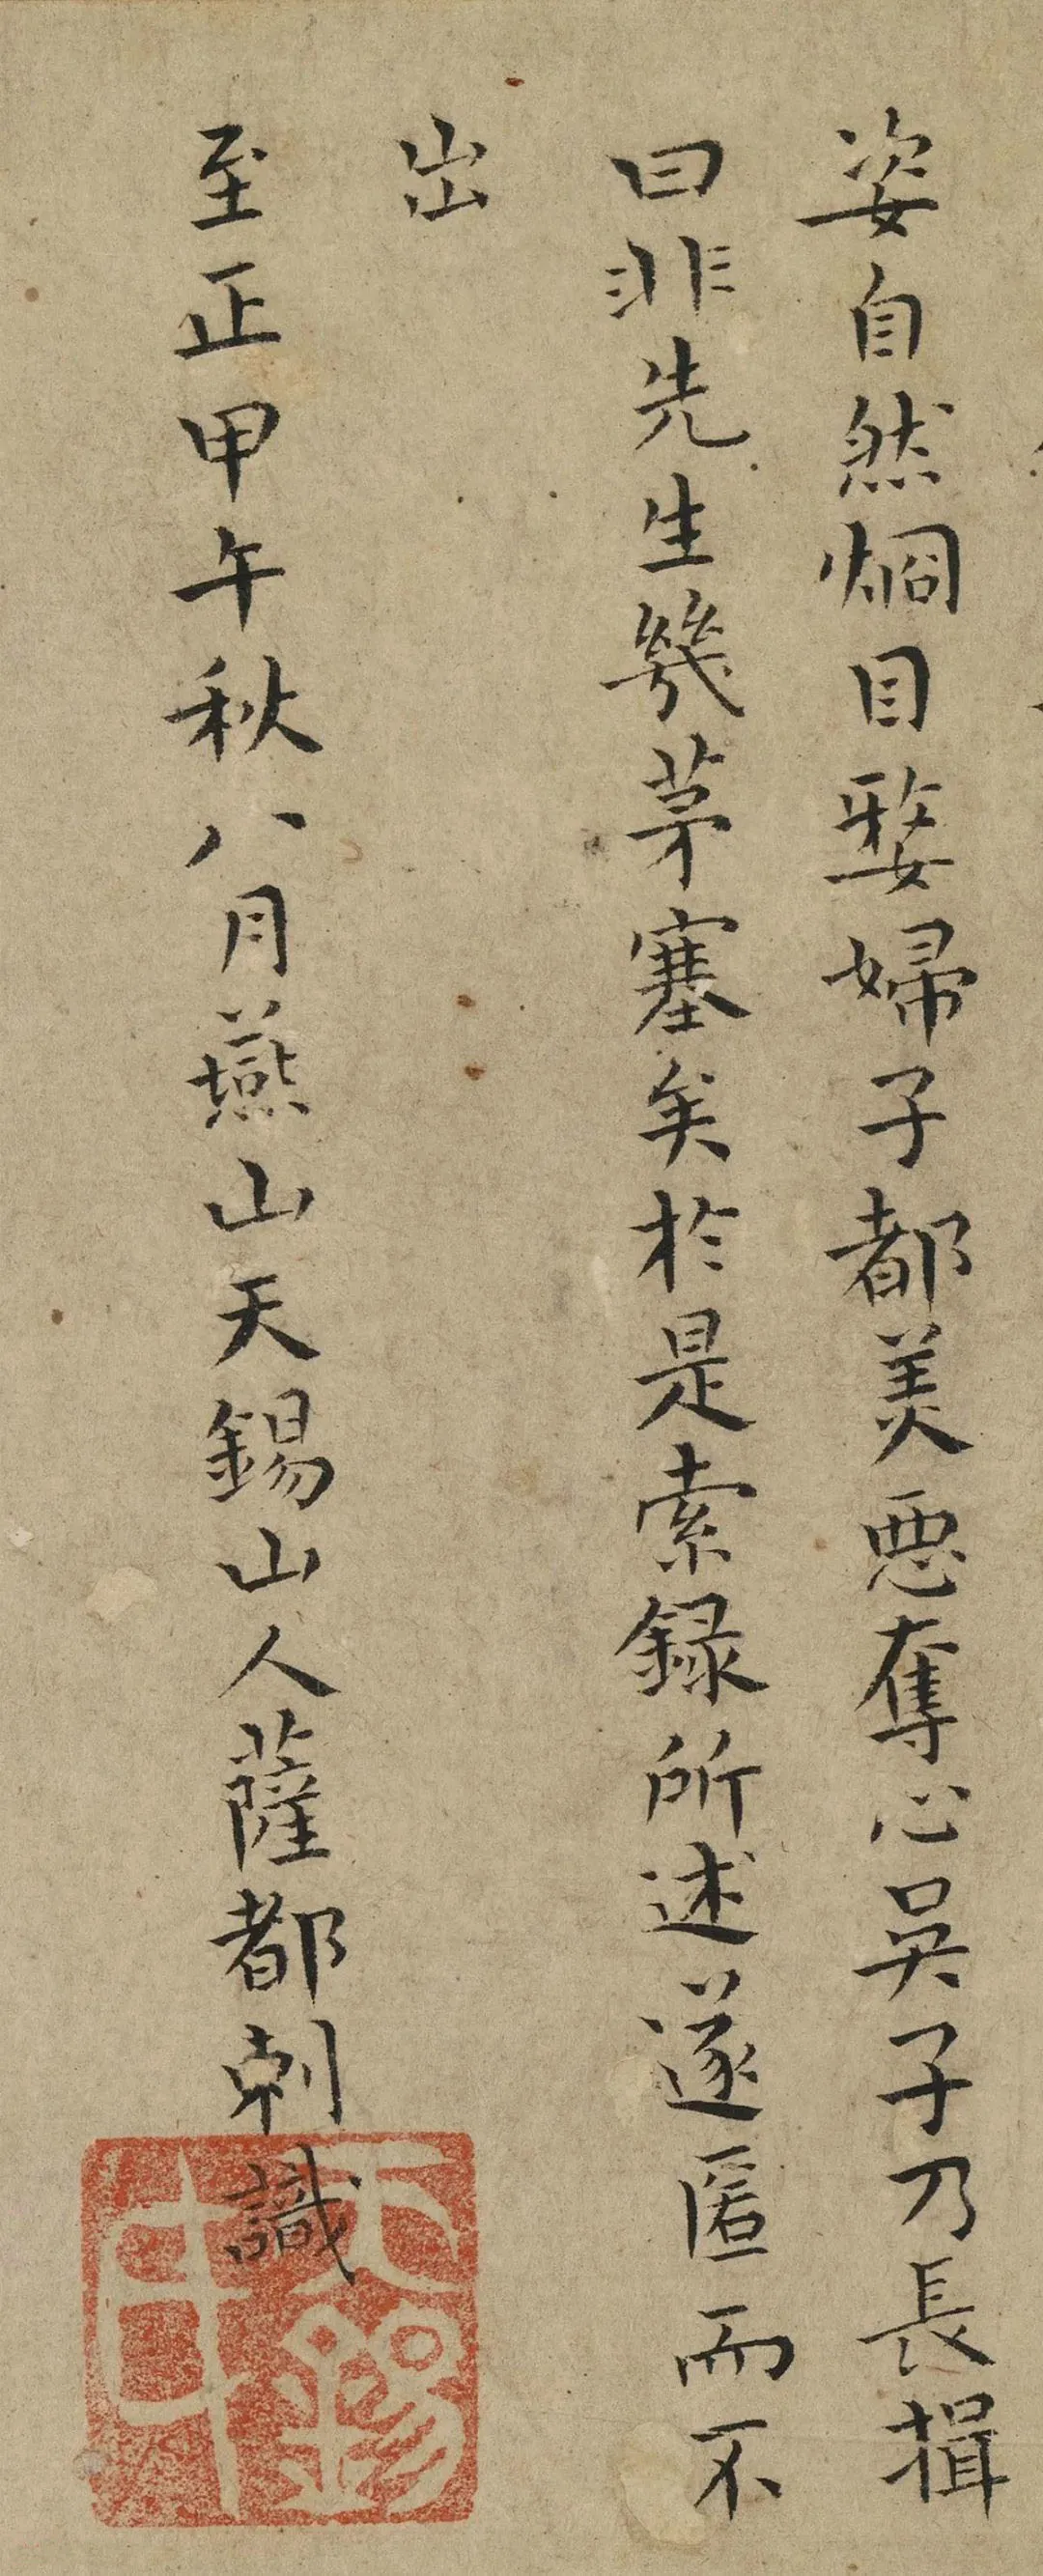 姿自然烱目婺婦子都美惡奪心吴子乃長揖
曰非先生幾茅塞矣於是索録所述遂匿而不
出
至正甲午秋八月燕山天錫山人薩都剌識
天錫